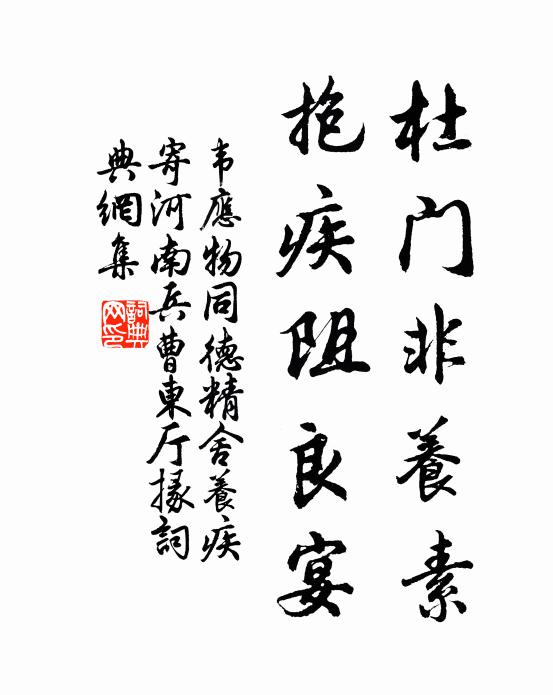 杜门非養素
抱疾阻良宴
韦應物同德精舍養疾
寄河南兵曹東厅掾詞
典網集
詞典
网印